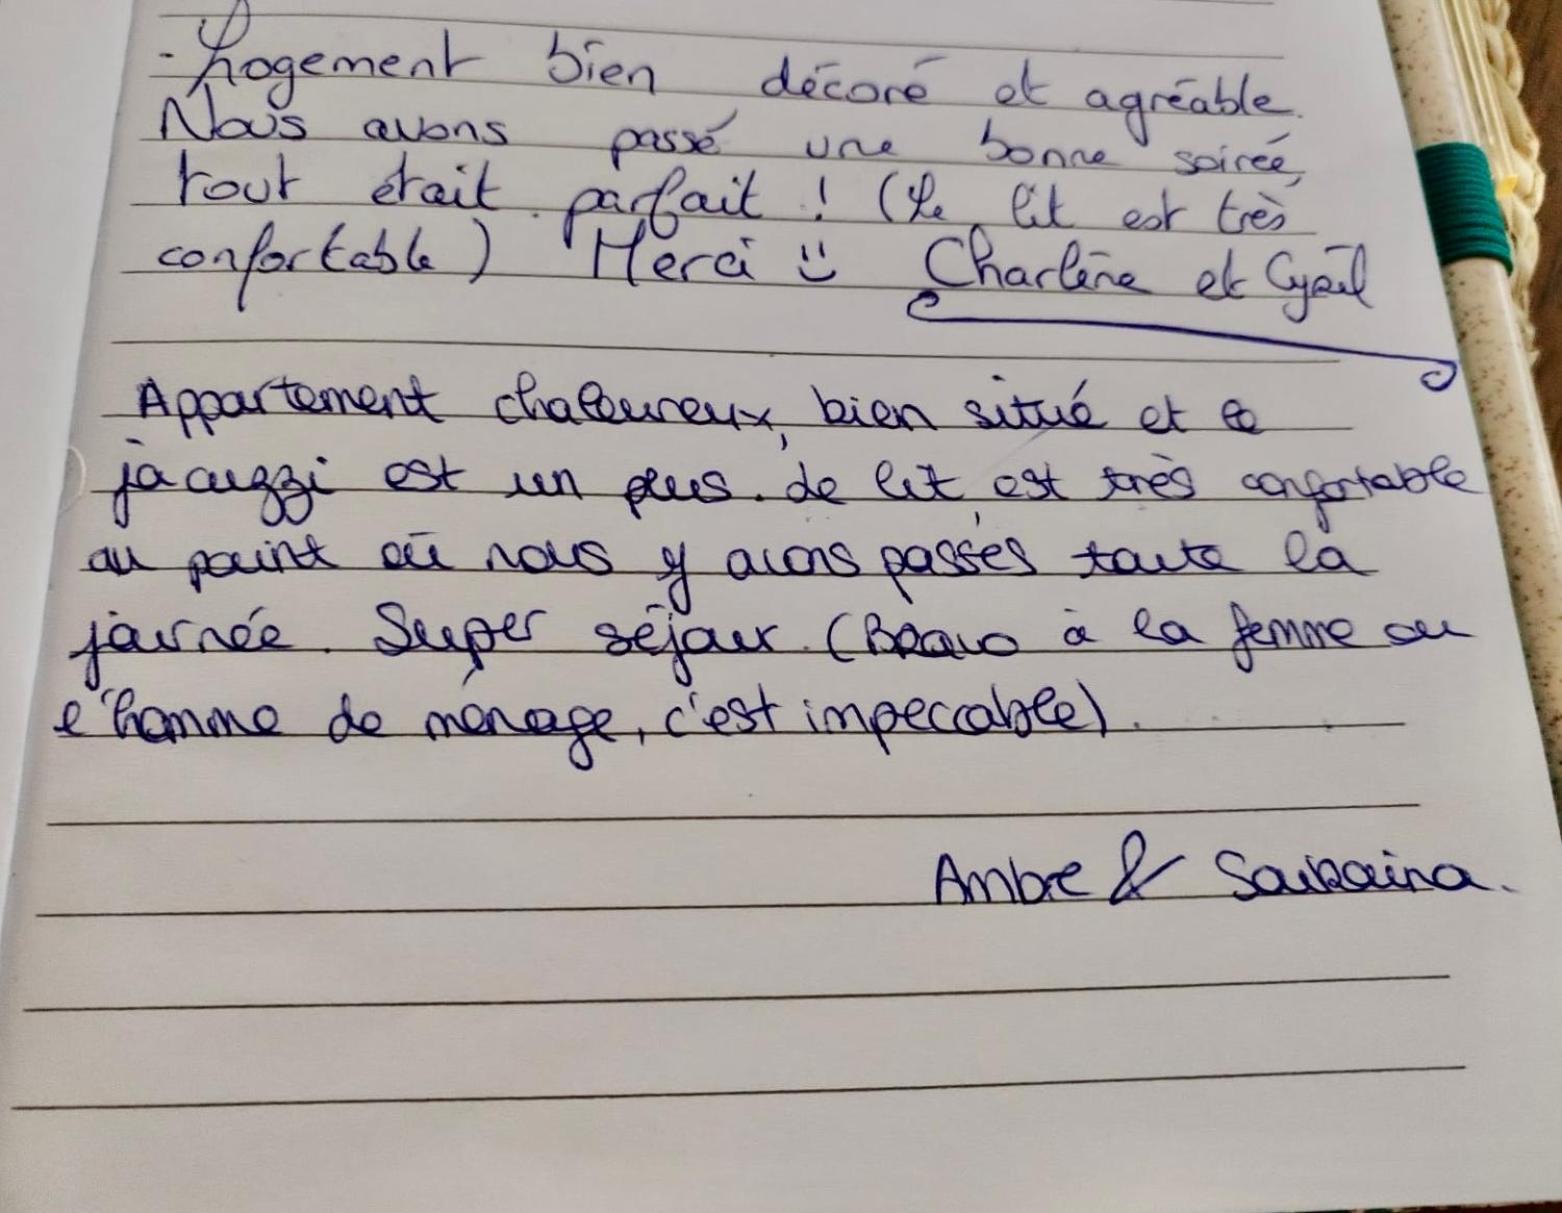 - Logement bien décoré et agréable.
Nous avons passé une bonne soirée,
tout était parfait ! (Le lit est très
confortable) Merci :) Charlène et Cyril
Appartement chaleureux, bien situé et le
jacuzzi est un plus. Le lit est très confortable
au point où nous y avons passés toute la
journée. Super séjour. (Bravo à la femme ou
l'homme de ménage, c'est impeccable).
Ambre & Soukaina.